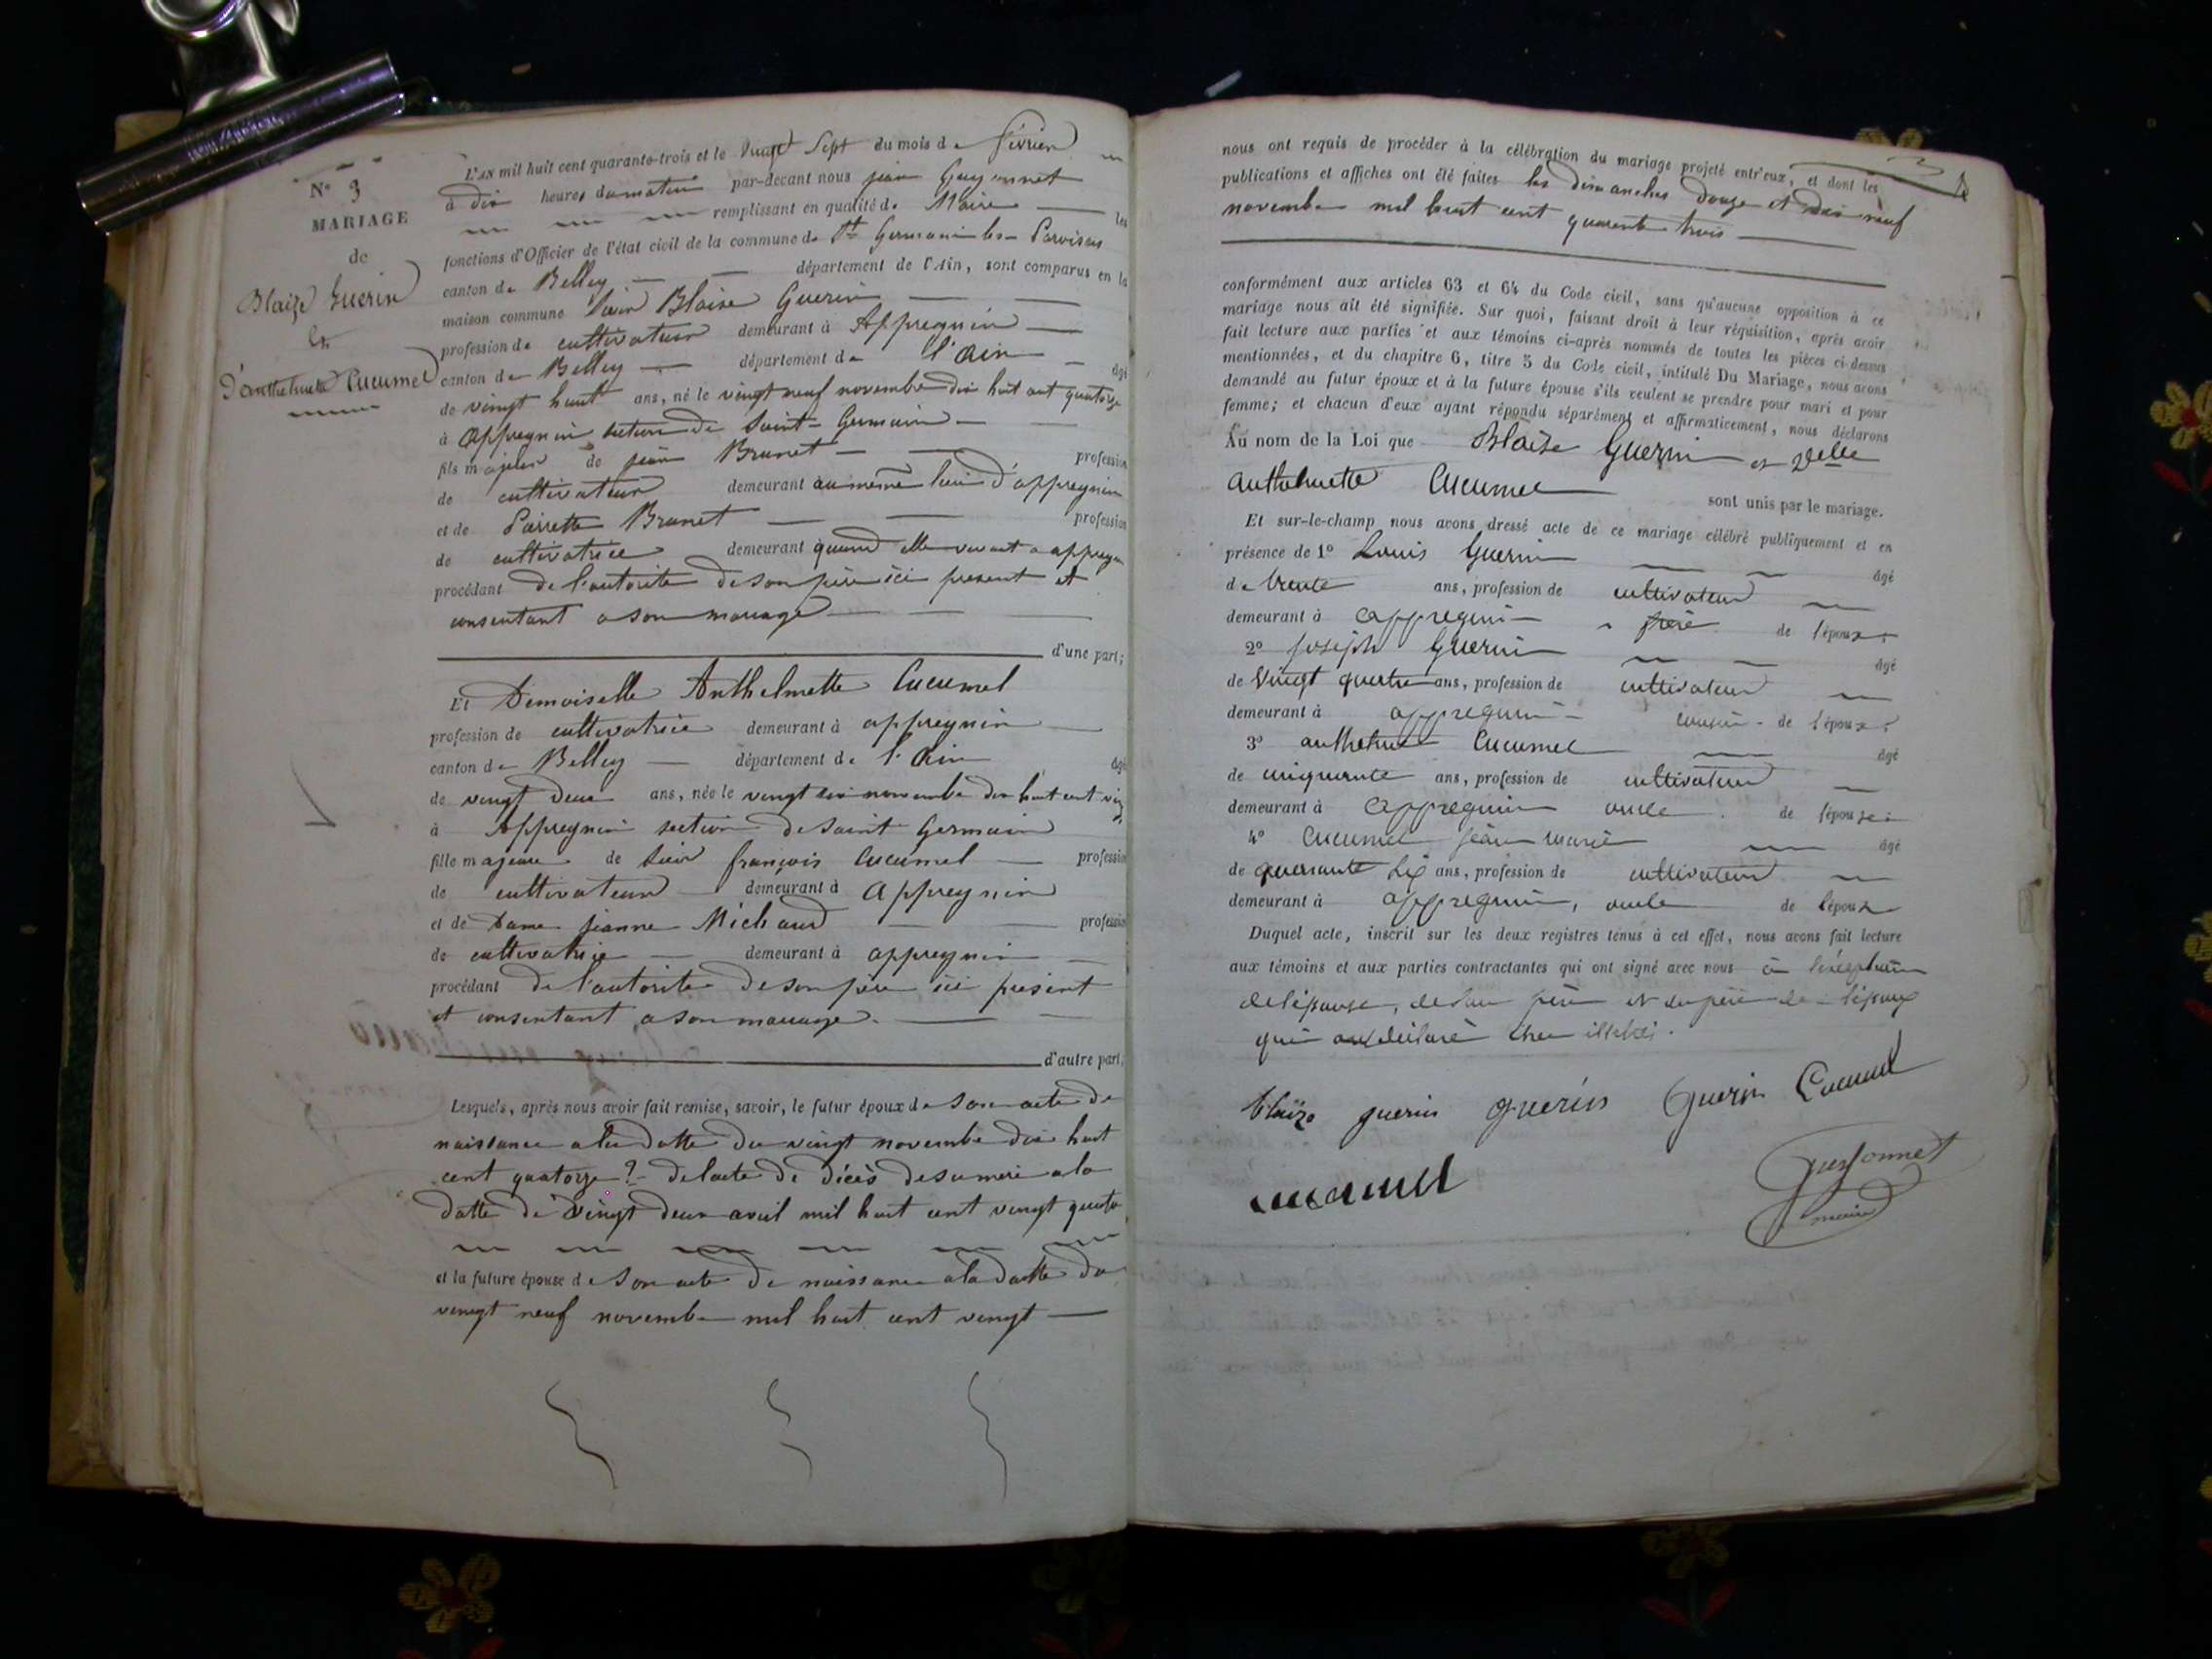 N° 3
MARIAGE
de
Blaise Guerin
et
d'anthelmette Cucumel
L'AN mil huit cent quarante-trois et le vingt Sept du mois de février
à dix heures du matin par-devant nous jean Guyonnet
remplissant en qualité de Maire les
fonctions d'Officier de l'état civil de la commune de St Germain les Paroisses
canton de Belley département de l'Ain, sont comparus en la
maison commune Sieur Blaise Guerin
profession de cultivateur demeurant à Appregnin
canton de Belley département de l'Ain âgé
de vingt huit ans, né le vingt neuf novembre dix huit cent quatorze
à Appregnin section de Saint-Germain
fils majeur de jean Brunet profession
de cultivateur demeurant au même lieu d'appregnin
et de Pierrette Brunet profession
de cultivatrice demeurant quand elle vivait a appregn
procédant de l'autorité de son père ici present et
consentant a son mariage
d'une part;
Et Demoiselle Anthelmette Cucumel
profession de cultivatrice demeurant à appregnin
canton de Belley département de l'Ain âgé
de vingt deux ans, née le vingt novembre dix huit cent ving
à Appregnin section de Saint Germain
fille majeure de Sieur françois Cucumel profession
de cultivateur demeurant à Appregnin
et de Dame jeanne Michaud profession
de cultivatrice demeurant à appregnin
procédant de l'autorité de son père ici présent
et consentant a son mariage.
d'autre part,
Lesquels, après nous avoir fait remise, savoir, le futur époux de son acte de
naissance a la datte du vingt novembre dix huit
cent quatorze ?- de l'acte de décès de sa mere a la
datte de vingt deux avril mil huit cent vingt quatre
et la future épouse de son acte de naissance a la datte du
vingt neuf novembre mil huit cent vingt
nous ont requis de procéder à la célébration du mariage projeté entr'eux, et dont les
publications et affiches ont été faites les dimanches douze et dix neuf
novembre mil huit cent quarente trois
conformément aux articles 63 et 64 du Code civil, sans qu'aucune opposition à ce
mariage nous ait été signifiée. Sur quoi, faisant droit à leur réquisition, après avoir
fait lecture aux parties et aux témoins ci-après nommés de toutes les pièces ci-dessus
mentionnées, et du chapitre 6, titre 5 du Code civil, intitulé Du Mariage, nous avons
demandé au futur époux et à la future épouse s'ils veulent se prendre pour mari et pour
femme; et chacun d'eux ayant répondu séparément et affirmativement, nous déclarons
Au nom de la Loi que Blaise Guerin et Delle
Anthelmette Cucumel sont unis par le mariage.
Et sur-le-champ nous avons dressé acte de ce mariage célébré publiquement et en
présence de 1° Louis Guerin âgé
de trente ans, profession de cultivateur
demeurant à appregnin frère de l'époux;
2° joseph Guerin âgé
de vingt quatre ans, profession de cultivateur
demeurant à appregnin cousin de l'époux;
3° anthelme Cucumel âgé
de cinquante ans, profession de cultivateur
demeurant à appregnin oncle de l'épouse;
4° Cucumel jean marie âgé
de quarante six ans, profession de cultivateur
demeurant à appregnin, oncle de l'épouse
Duquel acte, inscrit sur les deux registres tenus à cet effet, nous avons fait lecture
aux témoins et aux parties contractantes qui ont signé avec nous à l'exeption
de l'épouse, de son père et du père de l'époux
qui ont déclaré être illétrés.
blaize guerin guérin Guerin Cucumel
cucumel
Guyonnet
maire